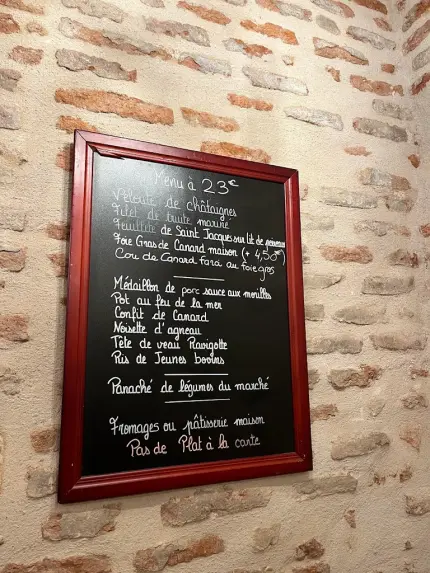 Menu à 23€
Velouté de châtaignes
Filet de truite mariné
Feuilleté de Saint Jacques sur lit de poireaux
Foie Gras de Canard maison (+ 4,50€)
Cou de Canard farci au foie gras
Médaillon de porc sauce aux morilles
Pot au feu de la mer
Confit de Canard
Noisette d'agneau
Tête de veau Ravigotte
Ris de Jeunes bovins
Panaché de légumes du marché
Fromages ou pâtisserie maison
Pas de Plat à la carte